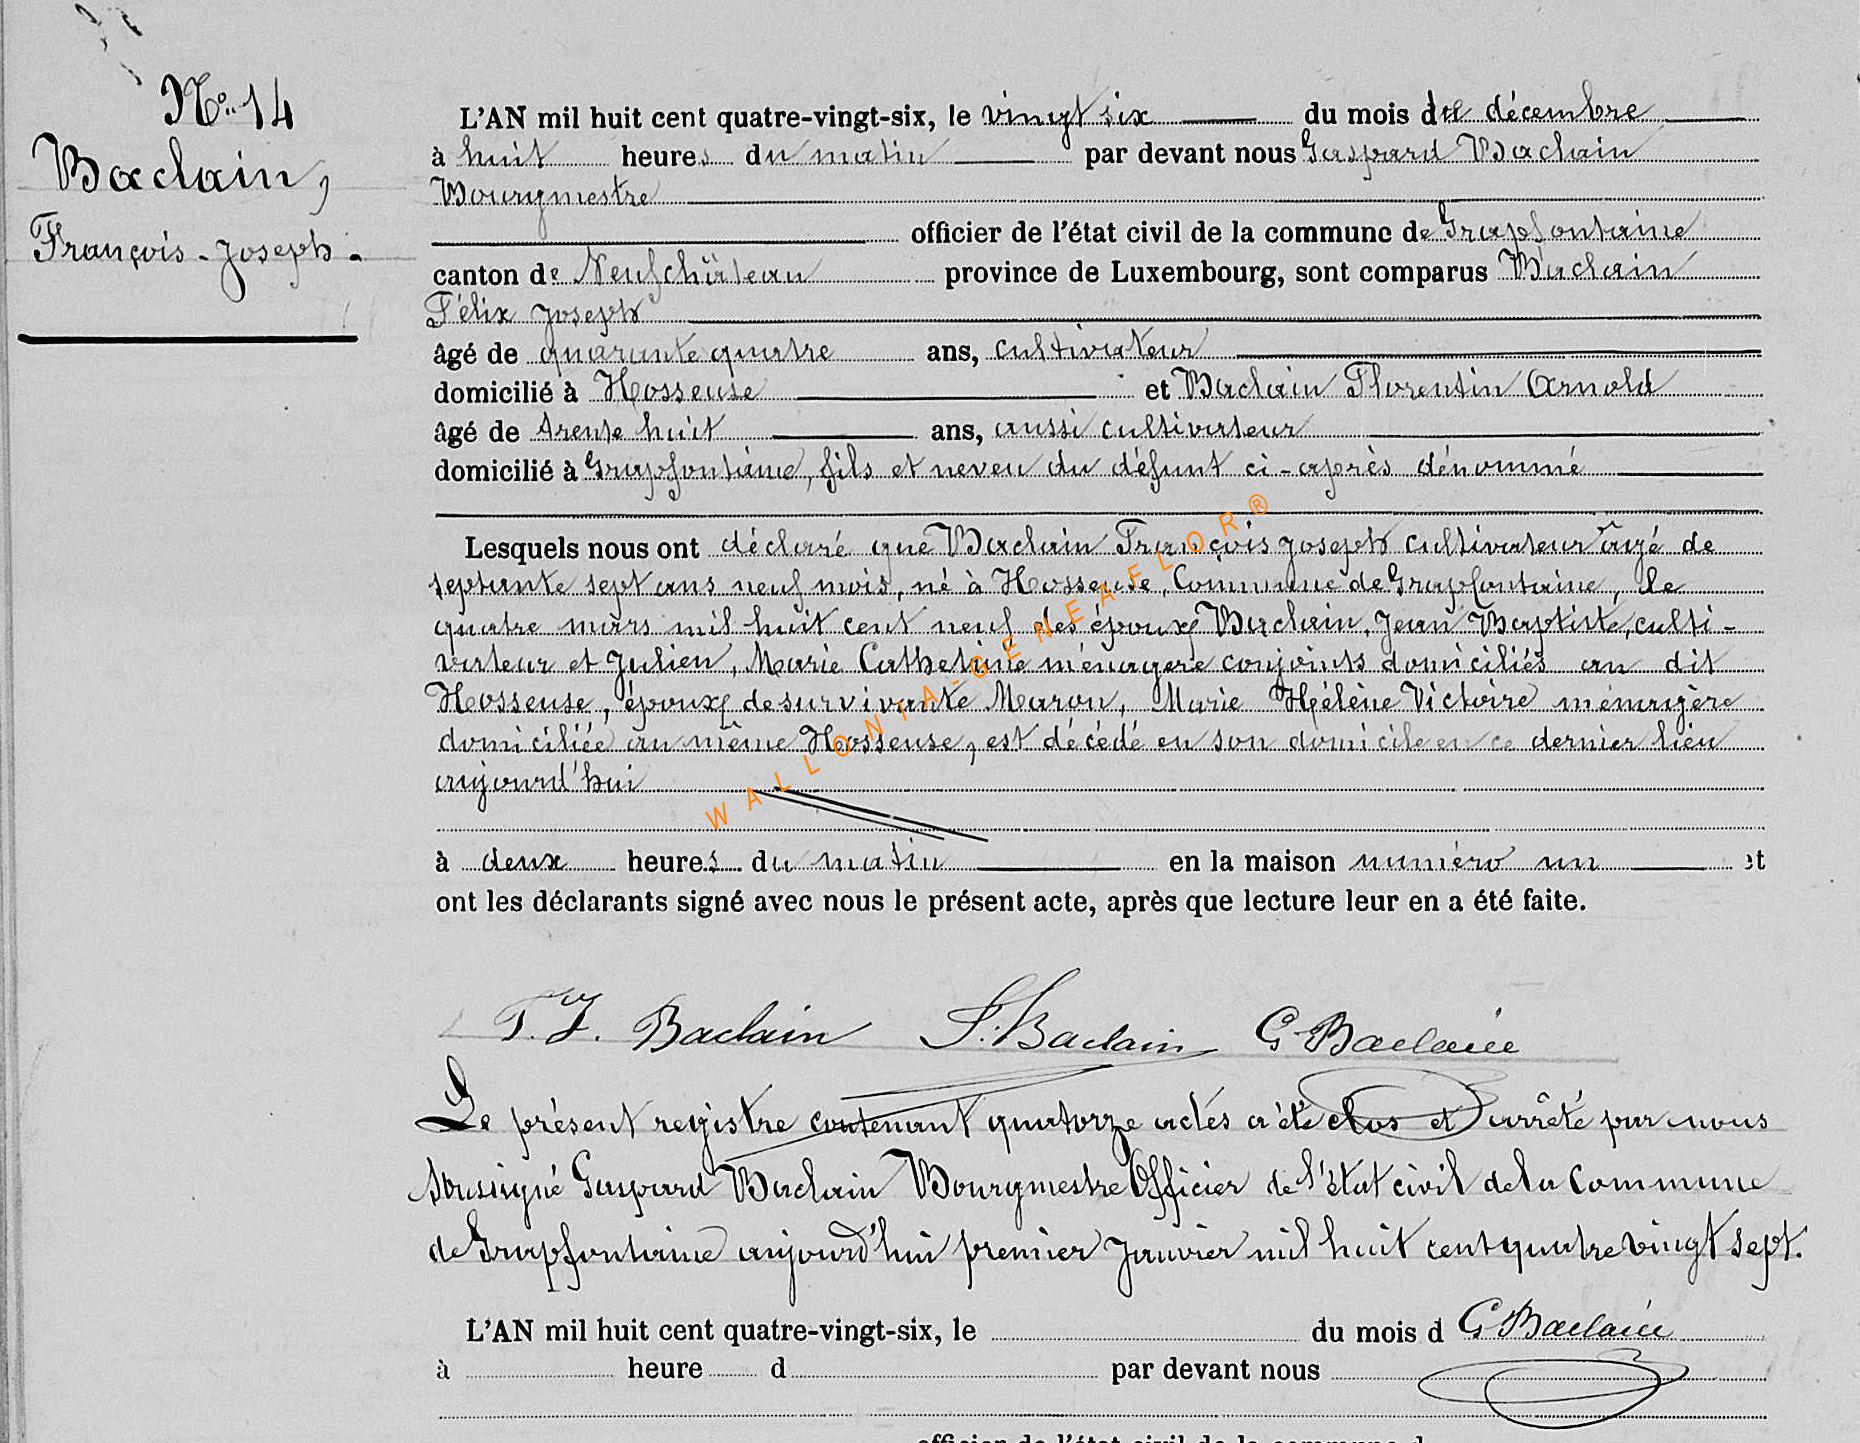 No. 14
Baclain,
François-Joseph.
L'AN mil huit cent quatre-vingt-six, le vingt six du mois de décembre
à huit heures du matin par devant nous Gaspard Baclain
Bourgmestre
officier de l'état civil de la commune de Grapfontaine
canton de Neufchâteau province de Luxembourg, sont comparus Baclain
Félix Joseph
âgé de quarante quatre ans, cultivateur
domicilié à Hosseuse et Baclain Florentin Arnold
âgé de trente huit ans, aussi cultivateur
domicilié à Grapfontaine, fils et neveu du défunt ci-après dénommé
Lesquels nous ont déclaré que Baclain François Joseph cultivateur âgé de
septante sept ans neuf mois, né à Hosseuse, Commune de Grapfontaine, le
quatre mars mil huit cent neuf des époux Baclain, Jean Baptiste, culti-
vateur et Julien, Marie Catherine ménagère conjoints domiciliés au dit
Hosseuse, époux de survivante Maron, Marie Hélène Victoire ménagère
domiciliée au même Hosseuse, est décédé en son domicile en ce dernier lieu
aujourd'hui
WALLONIA-GENEAFLOR®
à deux heures du matin en la maison numéro un et
ont les déclarants signé avec nous le présent acte, après que lecture leur en a été faite.
F. J. Baclain Baclain G Baclain
Le présent registre contenant quatorze actes a été clos et arrêté par nous
soussigné Gaspard Baclain Bourgmestre Officier de l'état civil de la Commune
de Grapfontaine aujourd'hui premier Janvier mil huit cent quatre vingt sept.
L'AN mil huit cent quatre-vingt-six, le du mois d G Baclain
à heure d par devant nous
officier de l'état civil de la commune d